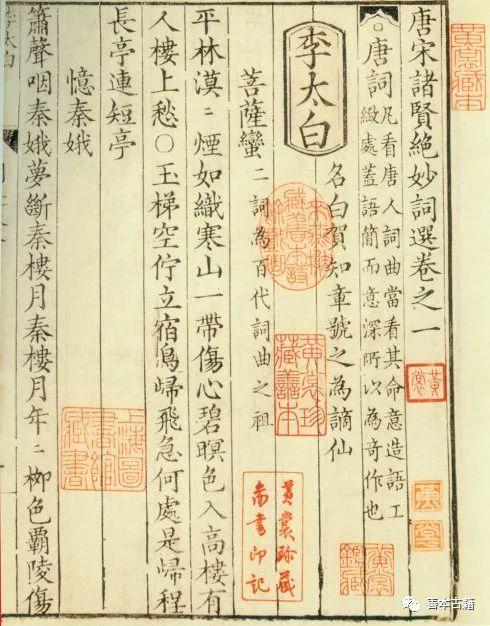 唐宋諸賢絕妙詞選卷之一
○唐詞凡看唐人詞曲當看其命意造語工
緻處蓋語簡而意深所以為奇作也
李太白
名白賀知章號之為謫仙
菩薩蠻 二詞為百代詞曲之祖
平林漠〻煙如織寒山一帶傷心碧暝色入高樓有
人樓上愁○玉梯空佇立宿鳥歸飛急何處是歸程
長亭連短亭
憶秦娥
簫聲咽秦娥夢斷秦樓月秦樓月年〻栁色覇陵傷
太白
黃裳藏本
黃裳
黃裳珍藏善本
黃裳珍藏圖書印記
上海圖書館藏書
善本古籍